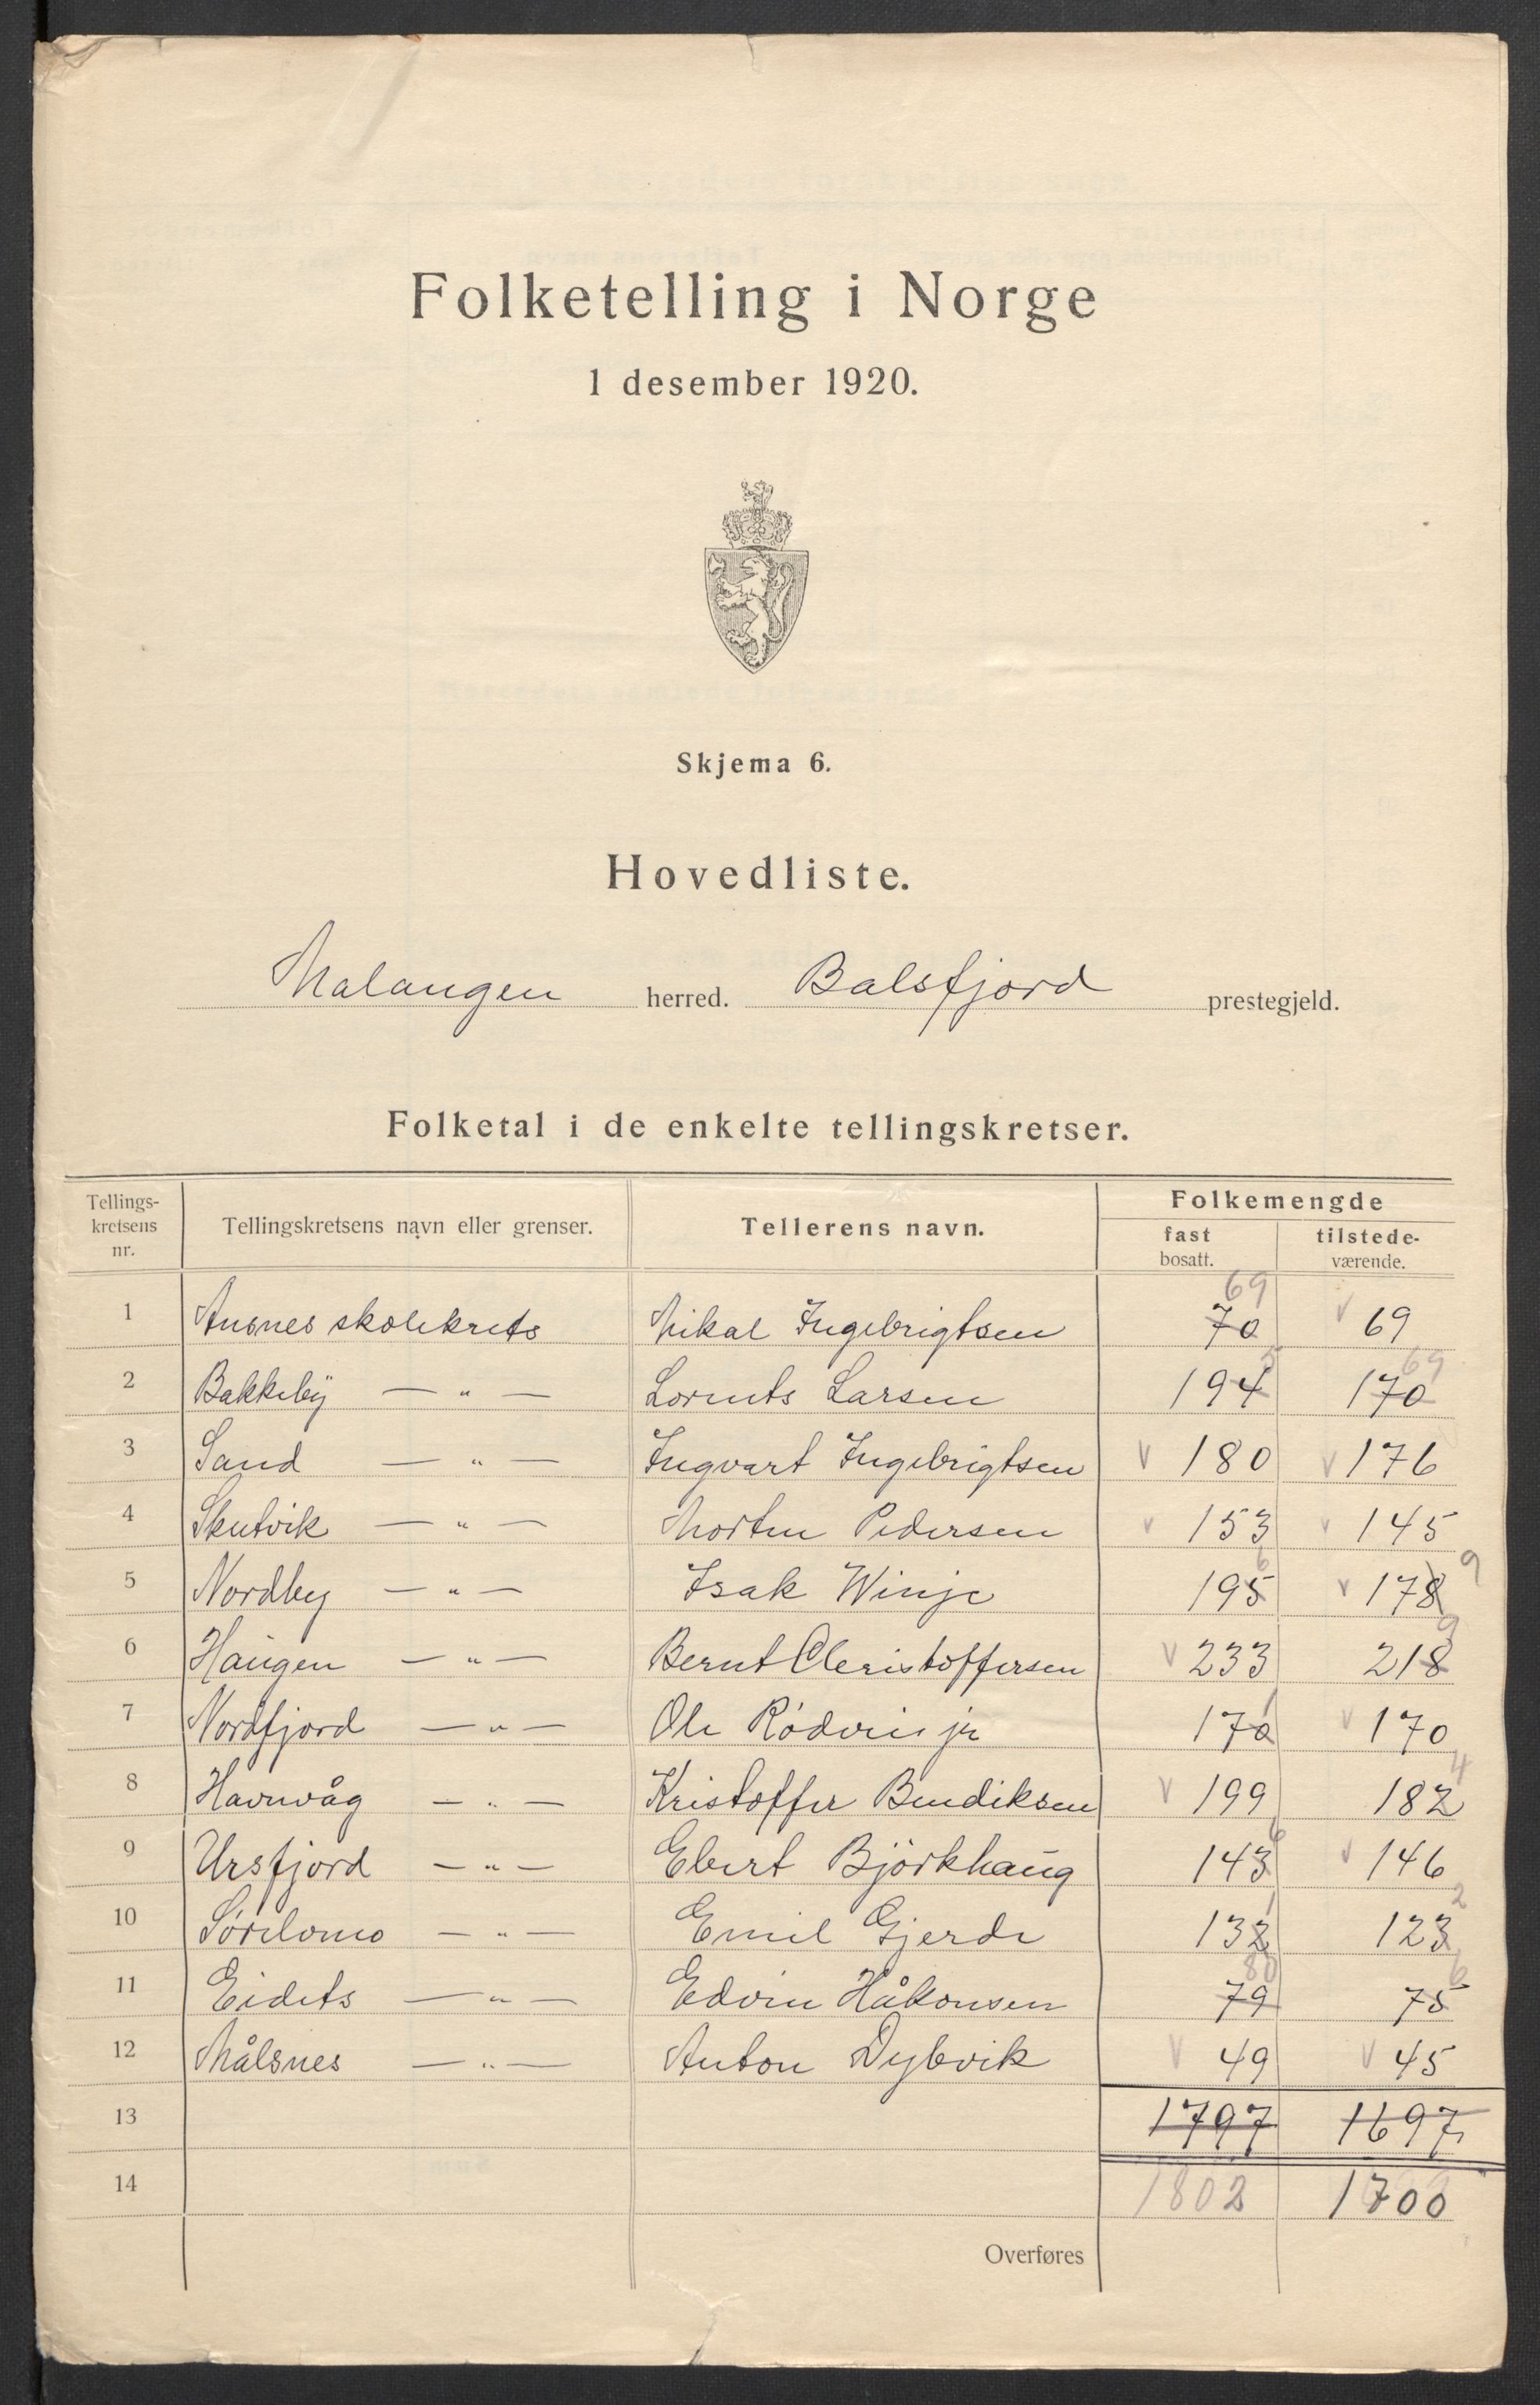 Folketelling i Norge
1 desember 1920.
Skjema 6.
Hovedliste.
Malangen herred. Balsfjord prestegjeld.
Folketal i de enkelte tellingskretser.
Tellings-kretsens nr. Tellingskretsens navn eller grenser. Tellerens navn. Folkemengde
fast bosatt. tilstede-værende.
69
1 Ansnes skolekrets Mikal Ingebrigtsen 70 v 69
5 69
2 Bakkeby — " — Lornts Larsen 194 170
3 Sand — " — Ingvart Ingebrigtsen v 180 v 176
4 Skutvik — " — Morten Pedersen v 153 v 145
6 9
5 Nordby — " — Isak Winje 195 v 178
9
6 Haugen — " — Bernt Christoffersen v 233 218
1
7 Nordfjord — " — Ole Rödvei jr 170 v 170
4
8 Havnvåg — " — Kristoffer Bendiksen v 199 182
6
9 Ursfjord — " — Ebert Björkhaug 143 v 146
1 2
10 Sørelomo — " — Emil Gjerde 132 123
80 6
11 Eidets — " — Edvin Håkonsen 79 75
12 Målsnes — " — Anton Dybvik v 49 v 45
13 1797 1697
14 1802 1700
Overføres